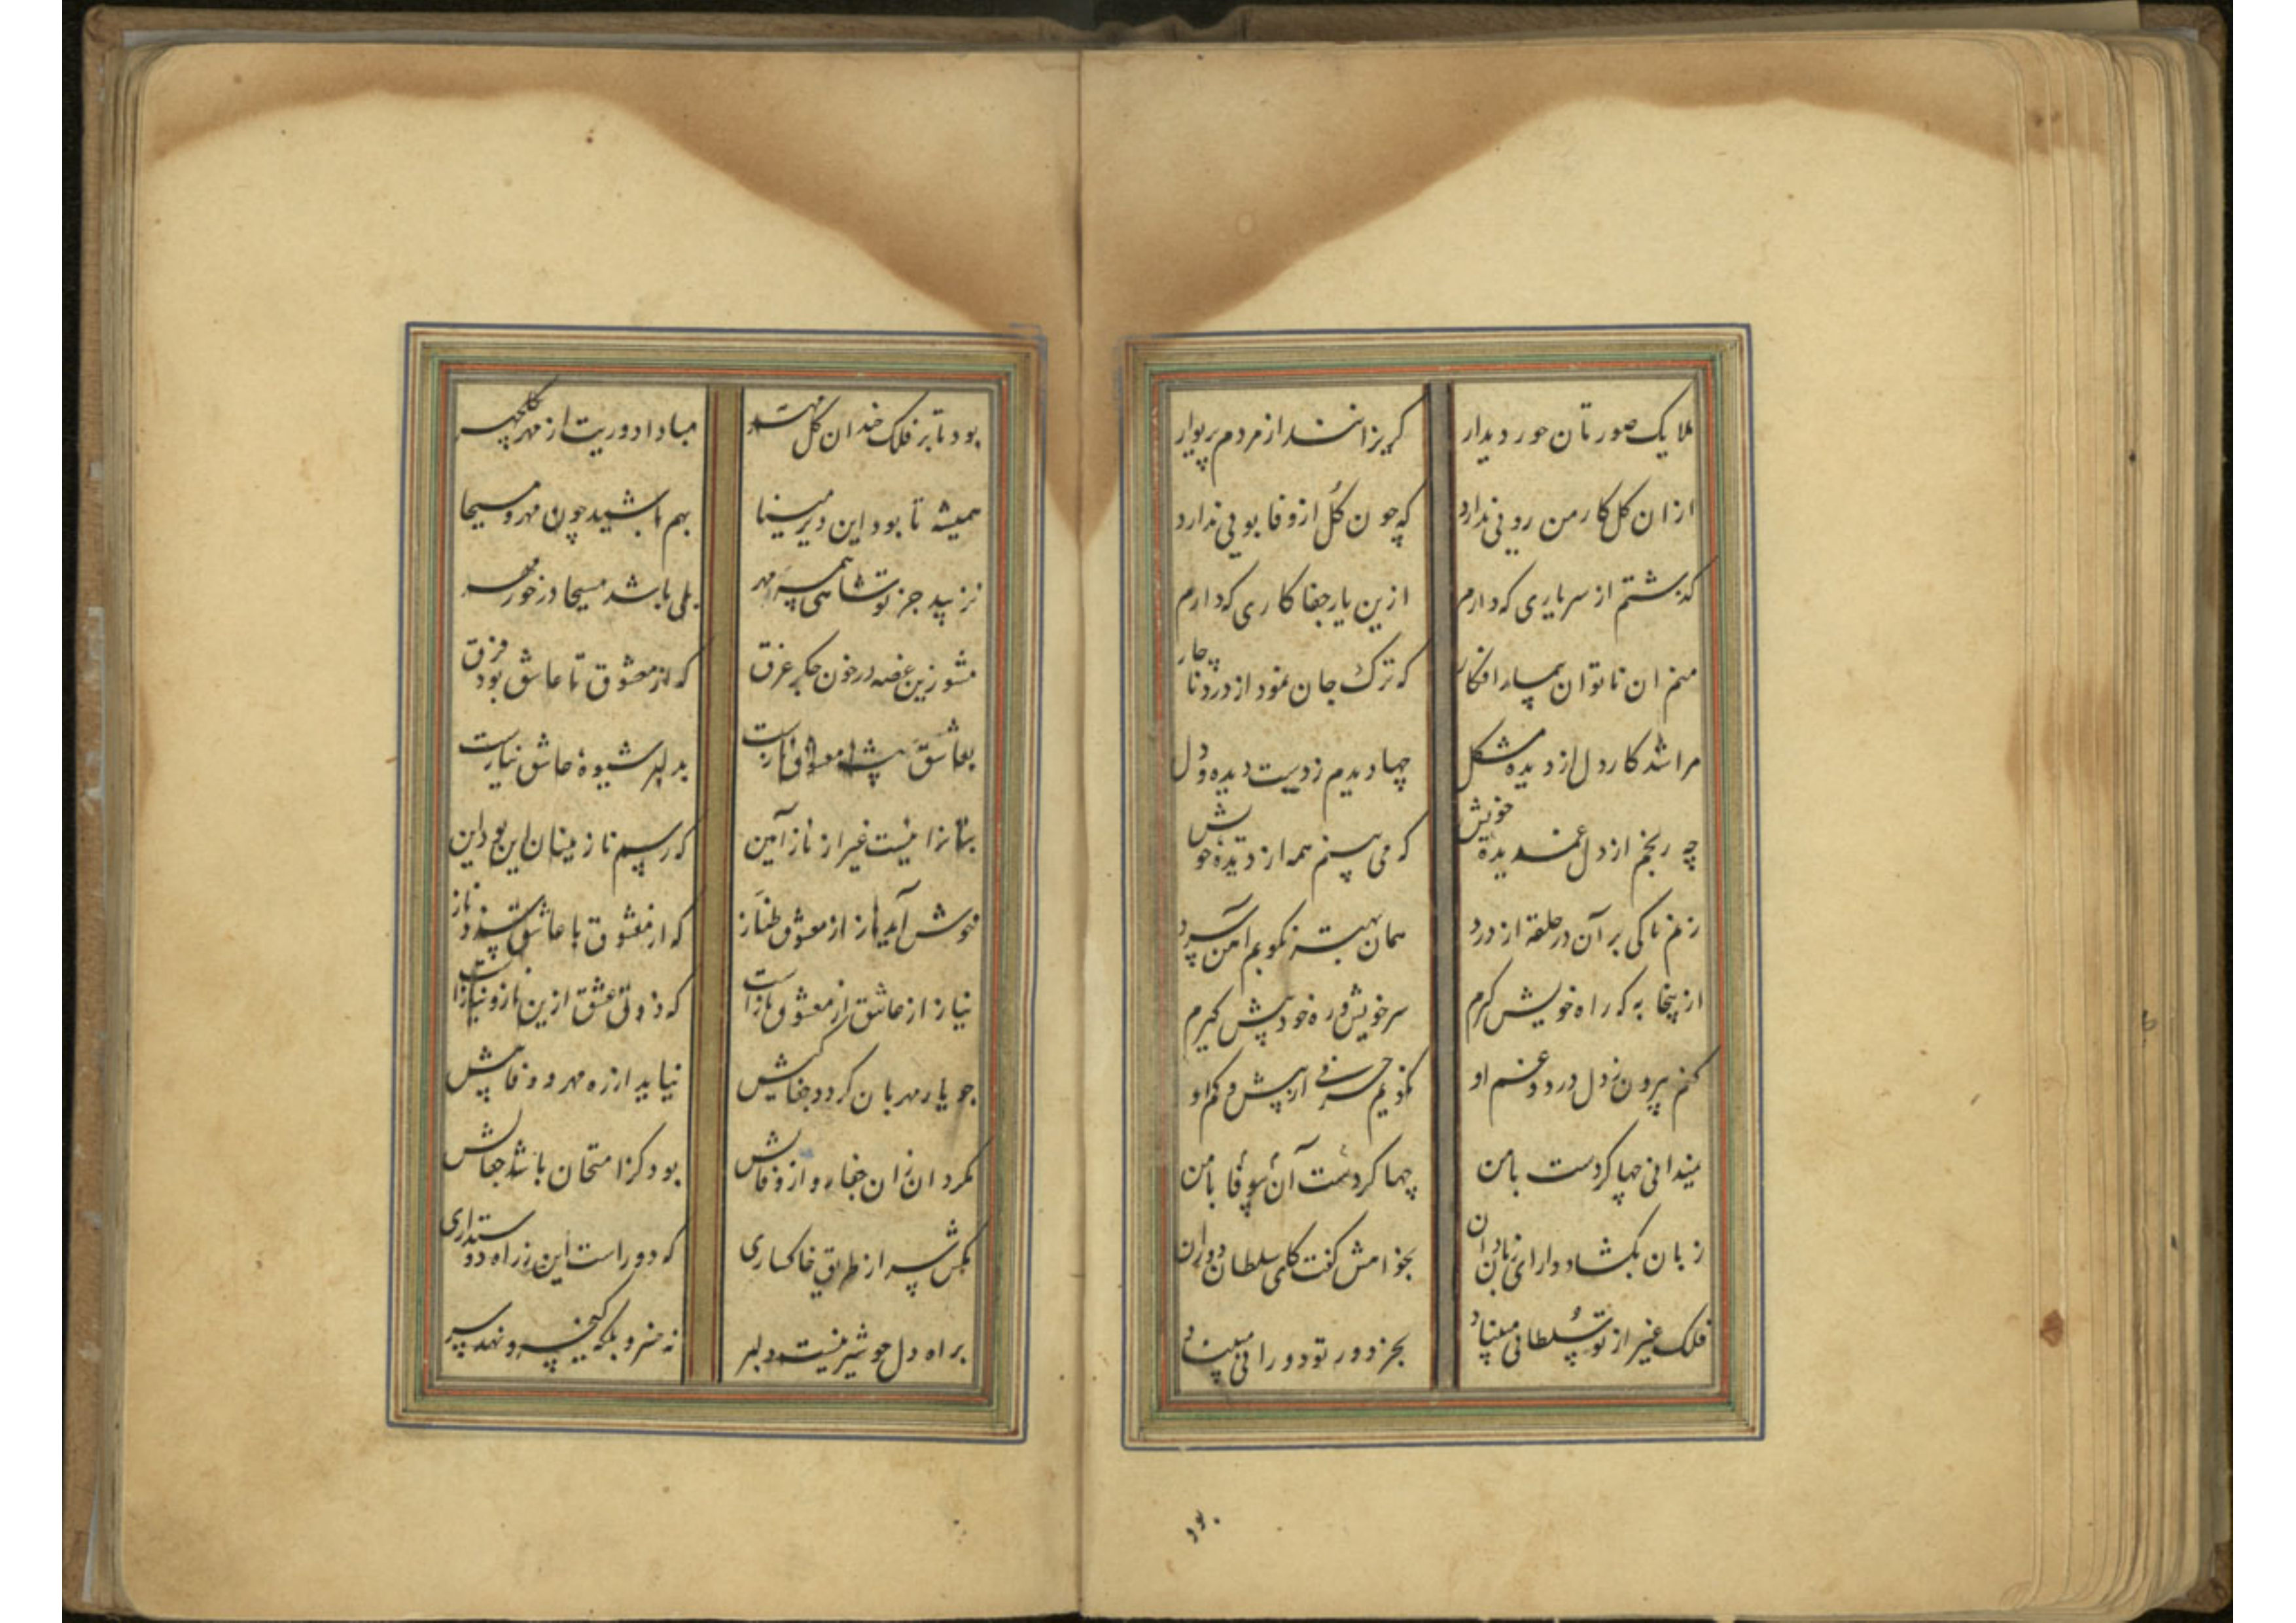 ملایک صورتان حور دیدار گریزانند از مردم پریوار
ازان گل کار من رویی ندارد که چون گل از وفا بویی ندارد
گذشتم از سر یاری که دارم ازین یار جفاکاری که دارم
منم ان ناتوان بیمار افکار که ترک جان نمود از درد ناچار
مرا شد کار دل از دیده مشکل چها دیدم ز دست دیده و دل
چه رنجم از دل غمدیده خویش که می بینم همه از دیده خویش
زنم تا کی بر آن در حلقه از درد همان بهتر نکوبم آهن سرد
ازینجا به که راه خویش گیرم سر خویش و ره خود پیش گیرم
کنم بیرون ز دل درد و غم او نگویم حرفی از بیش و کم او
نمیدانی چها کردست بامن چها کردست آن بیوفا بامن
زبان بگشاد دارای زبان دان بخوامش گفت کای سلطان دوران
فلک غیر از تو سلطانی مبیناد بجز دور تو دورانی مبیناد
بود
بود تا بر فلک خندان گل مهر مبادا دوریت از مهر گلچهر
همیشه تا بود این دیر مینا بهم باشید چون مهر و مسیحا
نزیبد جز تو شاهی همسر مهر بلی باشد مسیحا در خور مهر
مشو زین غصه در خون جکر غرق که از معشوق تا عاشق بود فرق
بعاشق معشوق نازست بدلبر شیوهٔ عاشق نیازست
بتانرا نیست غیر از ناز آیین که رسم نازنینان این بود این
خوش آید ناز از معشوق طناز که از معشوق با عاشق ناز
نیاز از عاشق از معشوق نازاست که ذوق عشق ازین ناز و نیازاست
جو یار مهربان کردد جفاکیش نیاید از ره مهر و وفا پیش
مگردان زان جفا رو از وفایش بود کز امتحان باشد جفایش
مکش سر از طریق خاکساری که دوراست این ز راه دوستداری
براه دل جو شیر نیست دلبر نه خسرو بلکه کیخسرو نهد سر